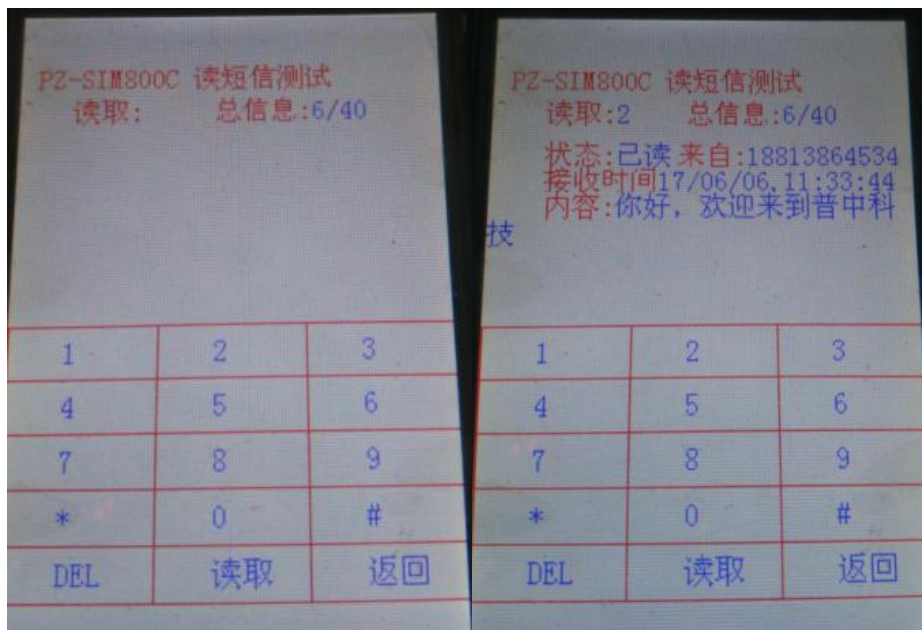 PZ-SIM800C 读短信测试
读取: 总信息:6/40
1 2 3
4 5 6
7 8 9
* 0 #
DEL 读取 返回
PZ-SIM800C 读短信测试
读取:2 总信息:6/40
状态:已读 来自:18813864534
接收时间17/06/06,11:33:44
内容:你好，欢迎来到普中科
技
1 2 3
4 5 6
7 8 9
* 0 #
DEL 读取 返回